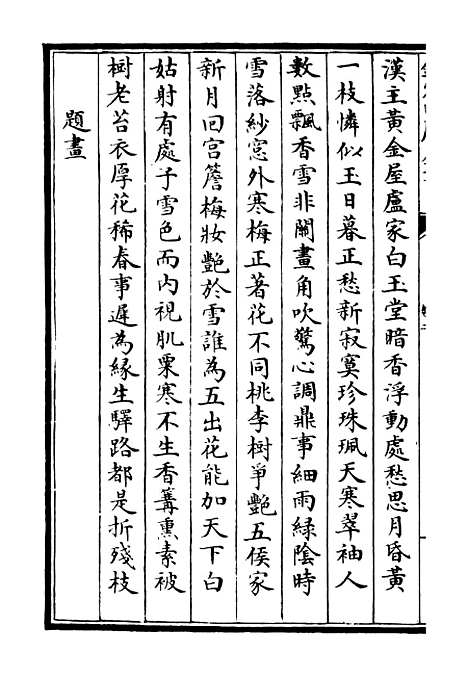 漢主黃金屋盧家白玉堂暗香浮動處愁思月昏黃
一枝憐似玉日暮正愁新寂寞珍珠珮天寒翠袖人
數點飄香雪非關畫角吹驚心調鼎事細雨綠陰時
雪落紗窓外寒梅正著花不同桃李樹爭艷五侯家
新月囘宮簷梅妝艷於雪誰為五出花能加天下白
姑射有處子雪色而内視肌栗寒不生香篝熏素被
樹老苔衣厚花稀春事遲為緣生驛路都是折殘枝
題畫